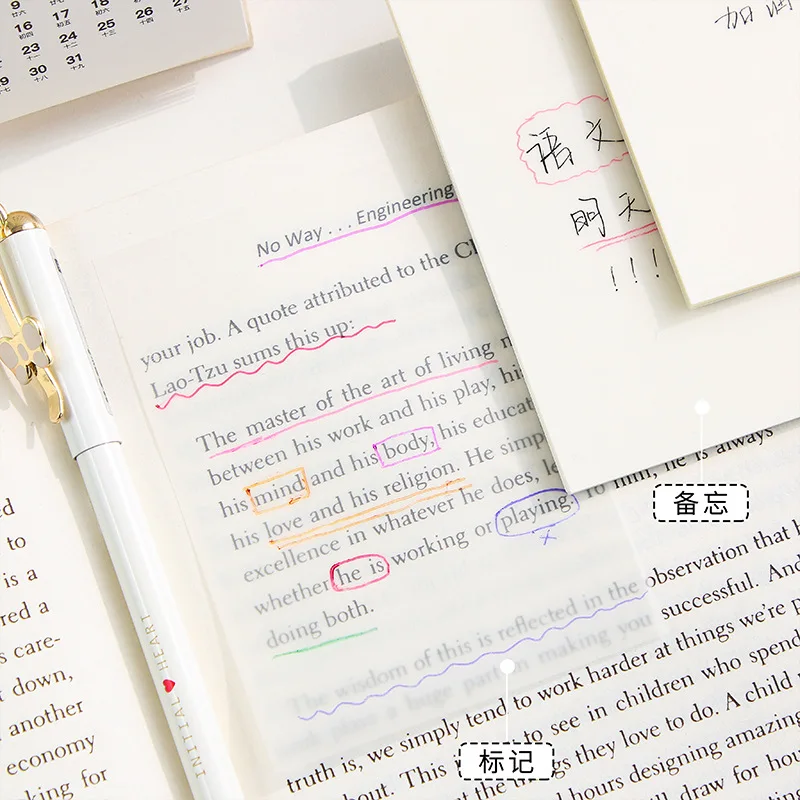 9
廿六
16
初四
17
初五
18
25
十三
26
27
23
十一
24
十二
30
十八
31
十九
加油
语文
明天
!!!
备忘
No Way . . . Engineering
your job. A quote attributed to the
Lao-Tzu sums this up:
The master of the art of living
between his work and his play, his
his mind and his body, his
his love and his religion. He
excellence in whatever he does,
whether he is working or playing. To him, he is always
doing both.
The wisdom of this is reflected in the observation that
successful. And
truth is, we simply tend to work harder at things we're
to see in children who spend
about. This
the things they love to do. A child
hours designing amazing
draw for
标记
to
is a
red a
care-
down,
another
economy
king for
INITIAL HEART